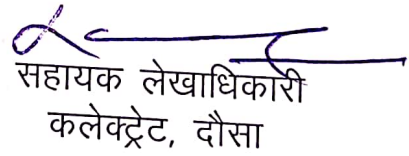 सहायक लेखाधिकारी
कलेक्ट्रेट, दौसा